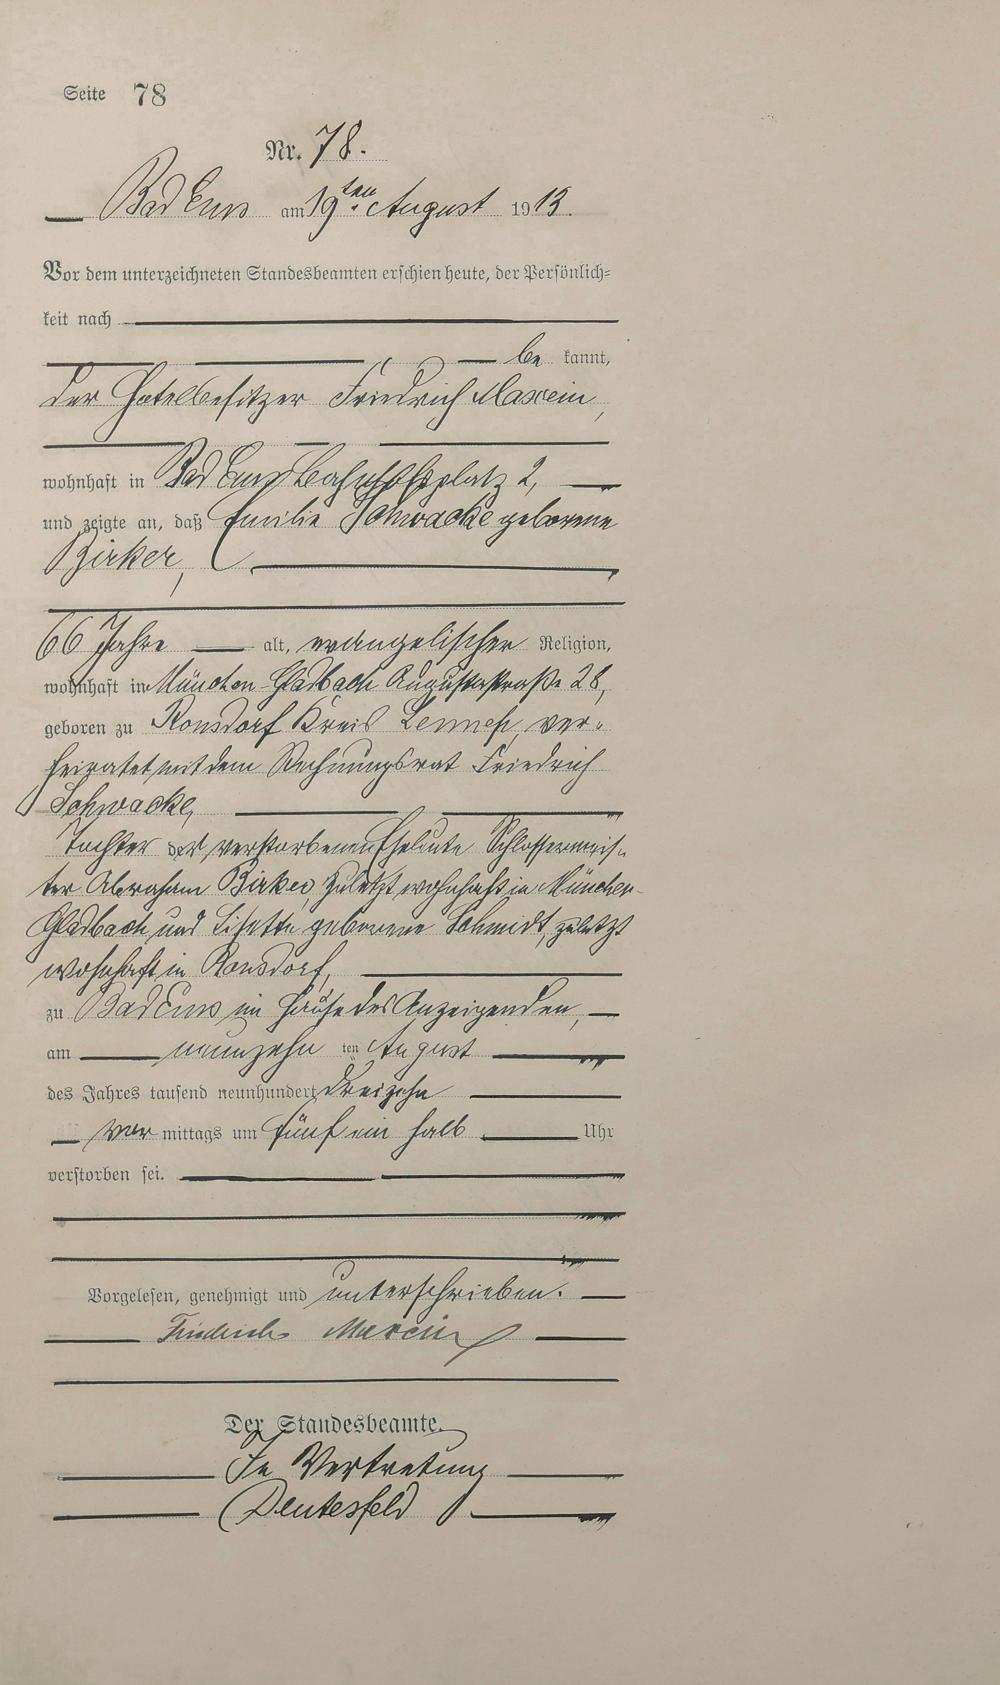 Seite 78
Nr. 78.
Bad Ems am 19ten August 1913.
Vor dem unterzeichneten Standesbeamten erschien heute, der Persönlich-
keit nach
be kannt,
der Hotelbesitzer Friedrich Maxein,
wohnhaft in Bad Ems Bahnhofsplatz 2,
und zeigte an, daß Emilie Schwacke geborene
Birker,
66 Jahre alt, evangelischer Religion,
wohnhaft in München-Gladbach Augustastraße 28,
geboren zu Ronsdorf Kreis Lennep, ver-
heiratet mit dem Rechnungsrat Friedrich
Schwacke,
Tochter der verstorbenen Eheleute Schlossermeis-
ter Abraham Birker, zuletzt wohnhaft in München-
Gladbach und Lisette geborene Schmidt, zuletzt
wohnhaft in Ronsdorf,
zu Bad Ems im Hause des Anzeigenden,
am neunzehn ten August
des Jahres tausend neunhundert dreizehn
vor mittags um fünf ein halb Uhr
verstorben sei.
Vorgelesen, genehmigt und unterschrieben.
Friedrich Maxein
Der Standesbeamte.
In Vertretung